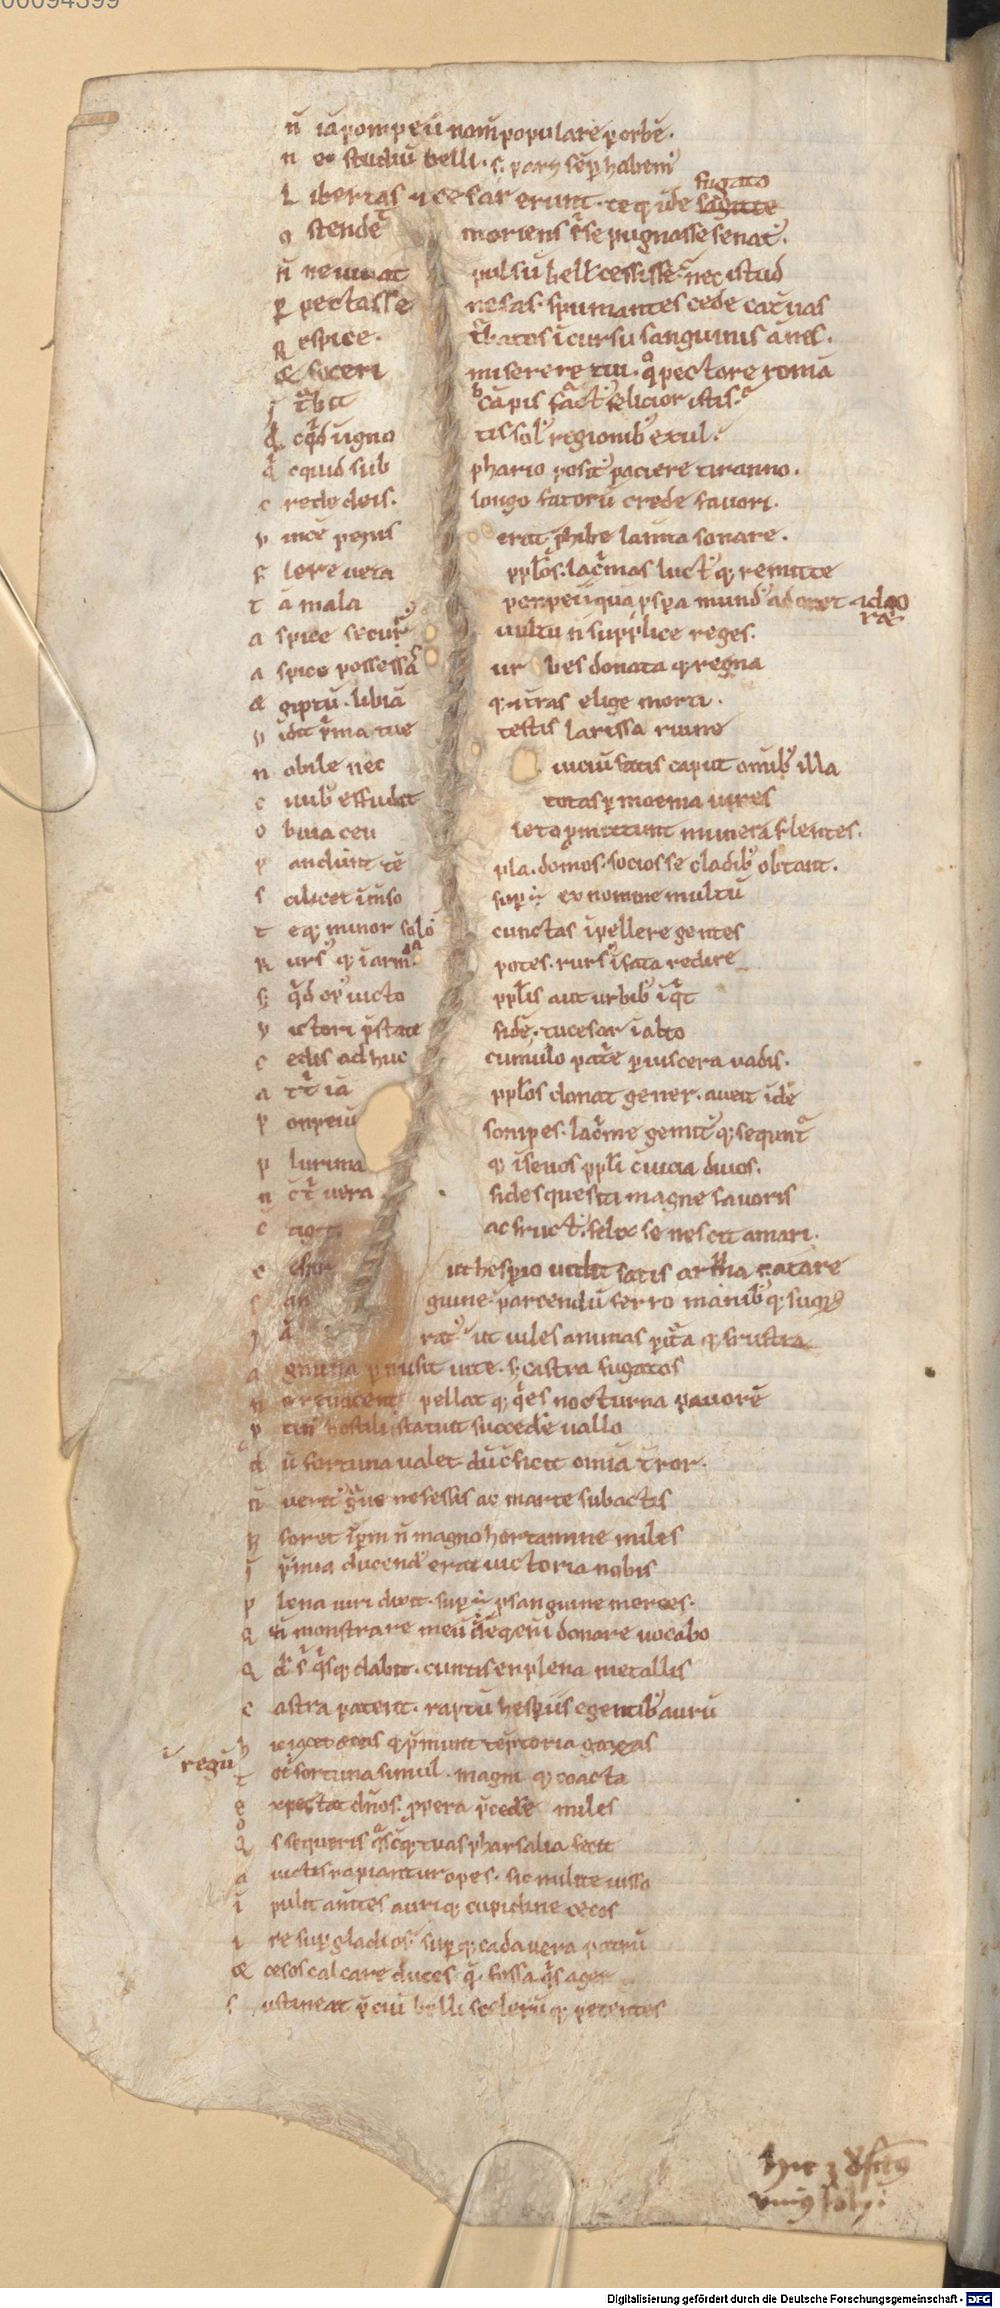 00094399
n̄ iā pompeii nom̄ populare ꝑ orbē.
n ec studiū belli. s; par q̄ sēꝑ habem᷒
L ibertas ⁊ cesar erunt. teq; īde fugato
o stendet moriens s̄ se pugnasse senat᷒.
n̄ ne iuuat pulsū bell᷒ cessisse. nec istud
ꝑ spectasse nefas. spumantes cede cat᷒uas
R espice. t᷒batos īcursu sanguinis ānes.
& soceri miserere tui. q̊ pectore romā
ītᵃbit fact᷒ felicior istis.
q̄ cq̄d ignotis sol᷒ regionib᷒ exul.
q̄ cquid sub phario posit᷒ paciere tiranno.
c rede deis. longo fatorū crede fauori.
v incē peius erat ꝓhibe lamta sonare.
f lere veta ppl̄os. lac̄mas luct᷒ q; remitte
t ā mala pompeii qua ꝓspa mund᷒ adoret
a spice secur᷒ uultu n̄ supplice reges.
a spice possessas ur bes donata q; regna
& giptū. libiā q; ⁊ t̄ras elige morti.
v idit p̄ma tue testis larissa ruine
n obile nec uictū fatis caput omīb᷒ illa
c iuib᷒ effudit totas ꝑ moenia uires
o buia ceu leto ꝓmittunt munera flentes.
p andunt tēpla. domos. socios se cladib᷒ obtant.
s cilicet īmēso suꝑ ē ex nomine multū
t eq; minor solo cunctas īpellere gentes
R urs᷒ q; ī arma potes. rurs᷒ ī fata redire
s; q̄d op᷒ uicto ppl̄is aut urbib᷒ īq̄t
v ictori p̄state fidē. tu cesar ī alto
c edis adhuc cumulo patⁱe ꝑ uiscera uadis.
a t t iā ppl̄os donat gener. auett īde
p onpeiū sonipes. lac̄me gemit᷒ q; sequnt
p lurima q; ī seuos ppl̄i cuicia diuos.
n c̄ t vera fides quesiti magne fauoris
c tigit ac fruct᷒. felix se nescit amari.
c esar ut hesꝑio uidit satis arua natare
s an guine parcendū ferro manib᷒ q; suoꝝ
ī ā rat᷒ ut uiles animas ꝑit᷒a q; frustra
a gmina ꝑmisit uite. s; castra fugatos
n e reuocent pellat q; q̄es nocturna pauorē
p tin᷒ hostili statuit succedere uallo
d ū fortuna valet dū cficit omīa t̄ror.
n̄ verit᷒ g̊ue ne fessis ac marte subactis
R soret īꝑm n̄ magno hortamine miles
ī p̄dā ducend᷒ erat uictoria nobis
p lena uiri dixit. suꝑ ē ꝓ sanguine merces.
q n̄ monstrare meū ē neq; enī donare vocabo
q d s̄ q̄sq; dabit. cuntis en plena metallis
c astra patent. raptū hesꝑiis e gentib᷒ aurū
h ic iacet eoas q; p̄munt tentoria gazas
t ot regū fortuna simul. magni q; coacta
e xpectat dn̄os. ꝓpera p̄cedē miles
q̊ s sequeris q̄s cq; tuas pharsalia fecit
a uictis rapiantur opes. sic milite iusso
ī pulit amētes auri q; cupidine cecos
ī re suꝑ gladios. suꝑ q; cadauera patrū
& cesos calcare duces. q̄. fossa q̄s agger
s ustineat p̄ciū belli scelerū q; petentes
Digitalisierung gefördert durch die Deutsche Forschungsgemeinschaft - DFG